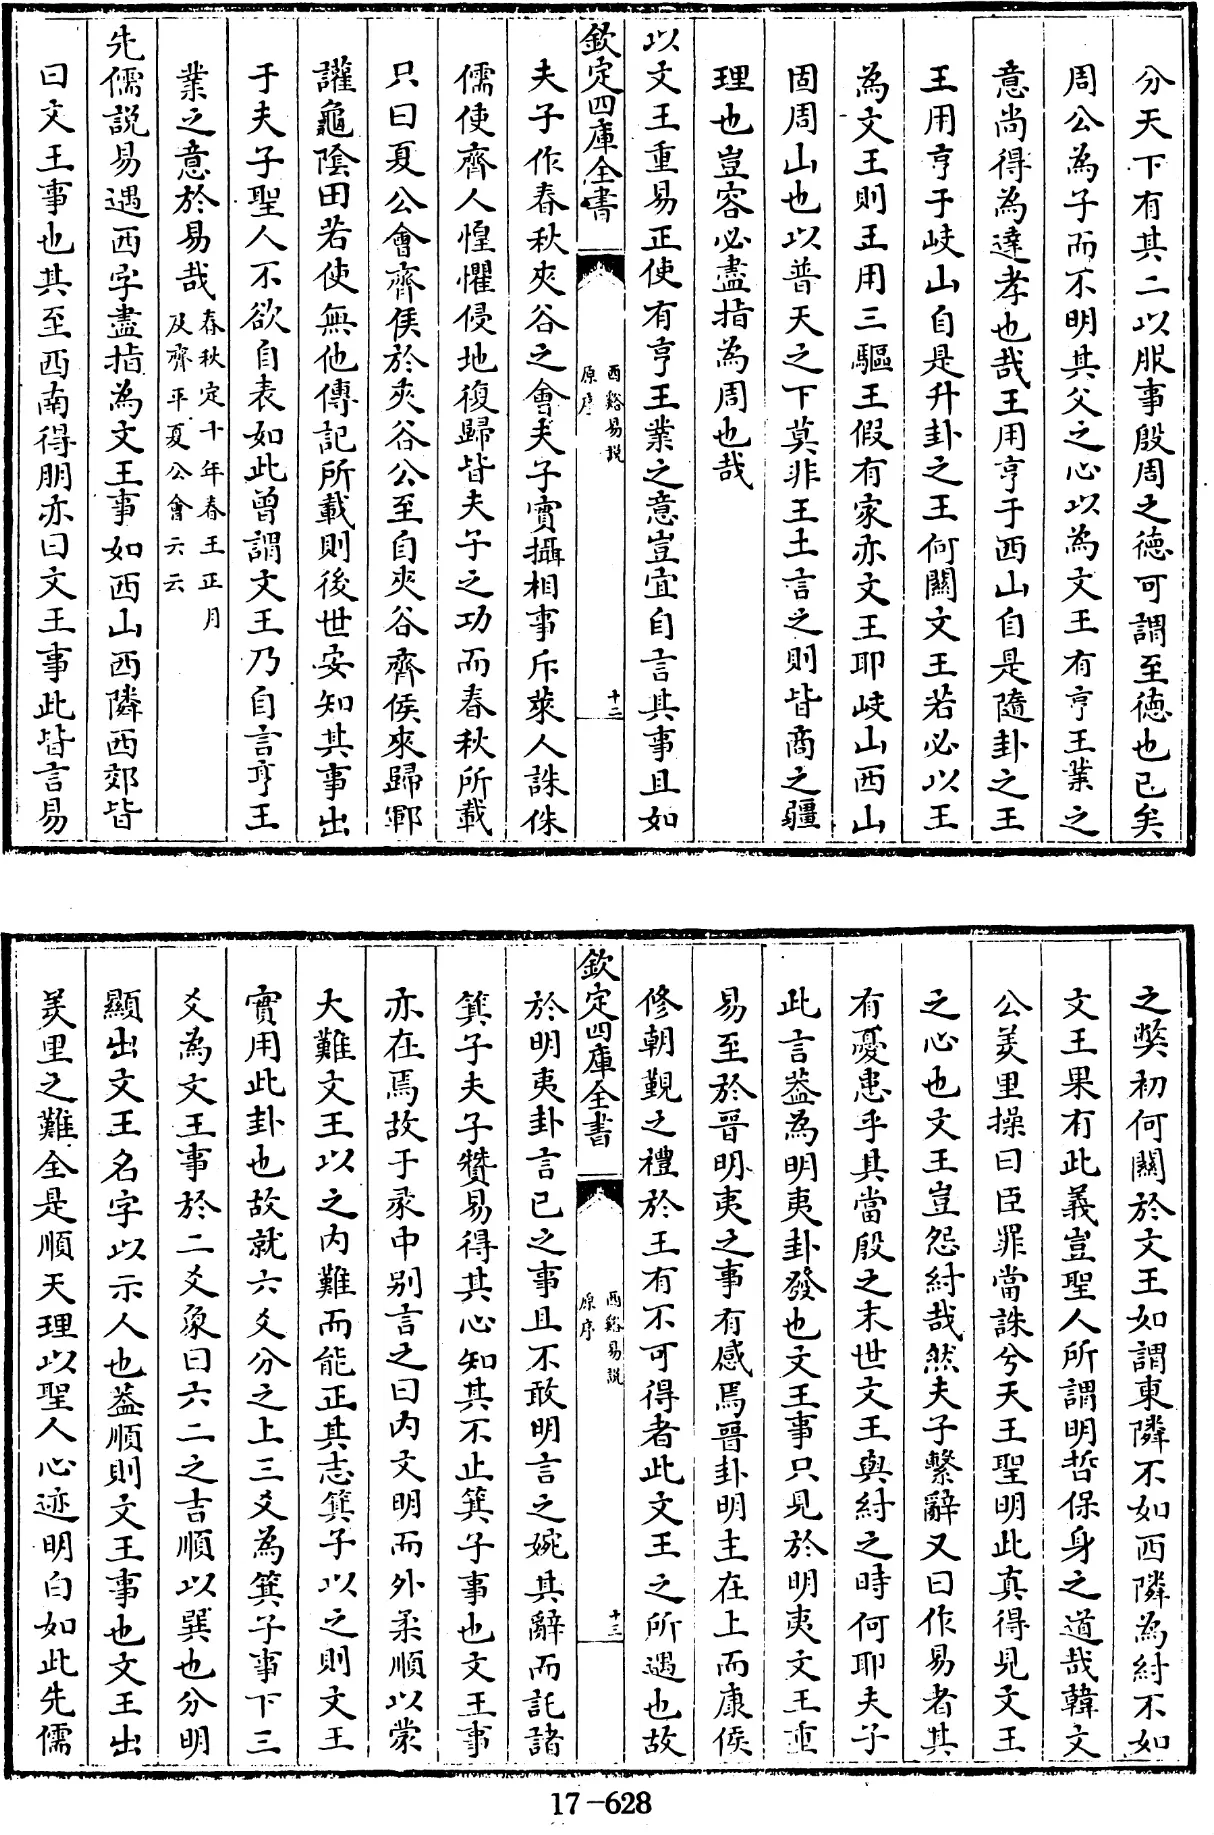 分天下有其二以服事殷周之德可謂至德也已矣
周公為子而不明其父之心以為文王有亨王業之
意尚得為達孝也哉王用亨于西山自是隨卦之王
王用亨于岐山自是升卦之王何關文王若必以王
為文王則王用三驅王假有家亦文王耶岐山西山
固周山也以普天之下莫非王土言之則皆商之疆
理也豈容必盡指為周也哉
以文王重易正使有亨王業之意豈宜自言其事且如
欽定四庫全書
西谿易說
原序
十二
夫子作春秋夾谷之會夫子實攝相事斥萊人誅侏
儒使齊人惶懼侵地復歸皆夫子之功而春秋所載
只曰夏公會齊侯於夾谷公至自夾谷齊侯來歸鄆
讙龜陰田若使無他傳記所載則後世安知其事出
于夫子聖人不欲自表如此曾謂文王乃自言亨王
業之意於易哉
春秋定十年春王正月
及齊平夏公會云云
先儒說易遇西字盡指為文王事如西山西隣西郊皆
曰文王事也其至西南得朋亦曰文王事此皆言易
之獘初何關於文王如謂東隣不如西隣為紂不如
文王果有此義豈聖人所謂明哲保身之道哉韓文
公羑里操曰臣罪當誅兮天王聖明此真得見文王
之心也文王豈怨紂哉然夫子繫辭又曰作易者其
有憂患乎其當殷之末世文王與紂之時何耶夫子
此言葢為明夷卦發也文王事只見於明夷文王重
易至於晉明夷之事有感焉晉卦明主在上而康侯
修朝覲之禮於王有不可得者此文王之所遇也故
欽定四庫全書
西谿易說
原序
十三
於明夷卦言已之事且不敢明言之婉其辭而託諸
箕子夫子贊易得其心知其不止箕子事也文王事
亦在焉故于彖中别言之曰内文明而外柔順以蒙
大難文王以之内難而能正其志箕子以之則文王
實用此卦也故就六爻分之上三爻為箕子事下三
爻為文王事於二爻象曰六二之吉順以巽也分明
顯出文王名字以示人也葢順則文王事也文王出
羑里之難全是順天理以聖人心迹明白如此先儒
17-628